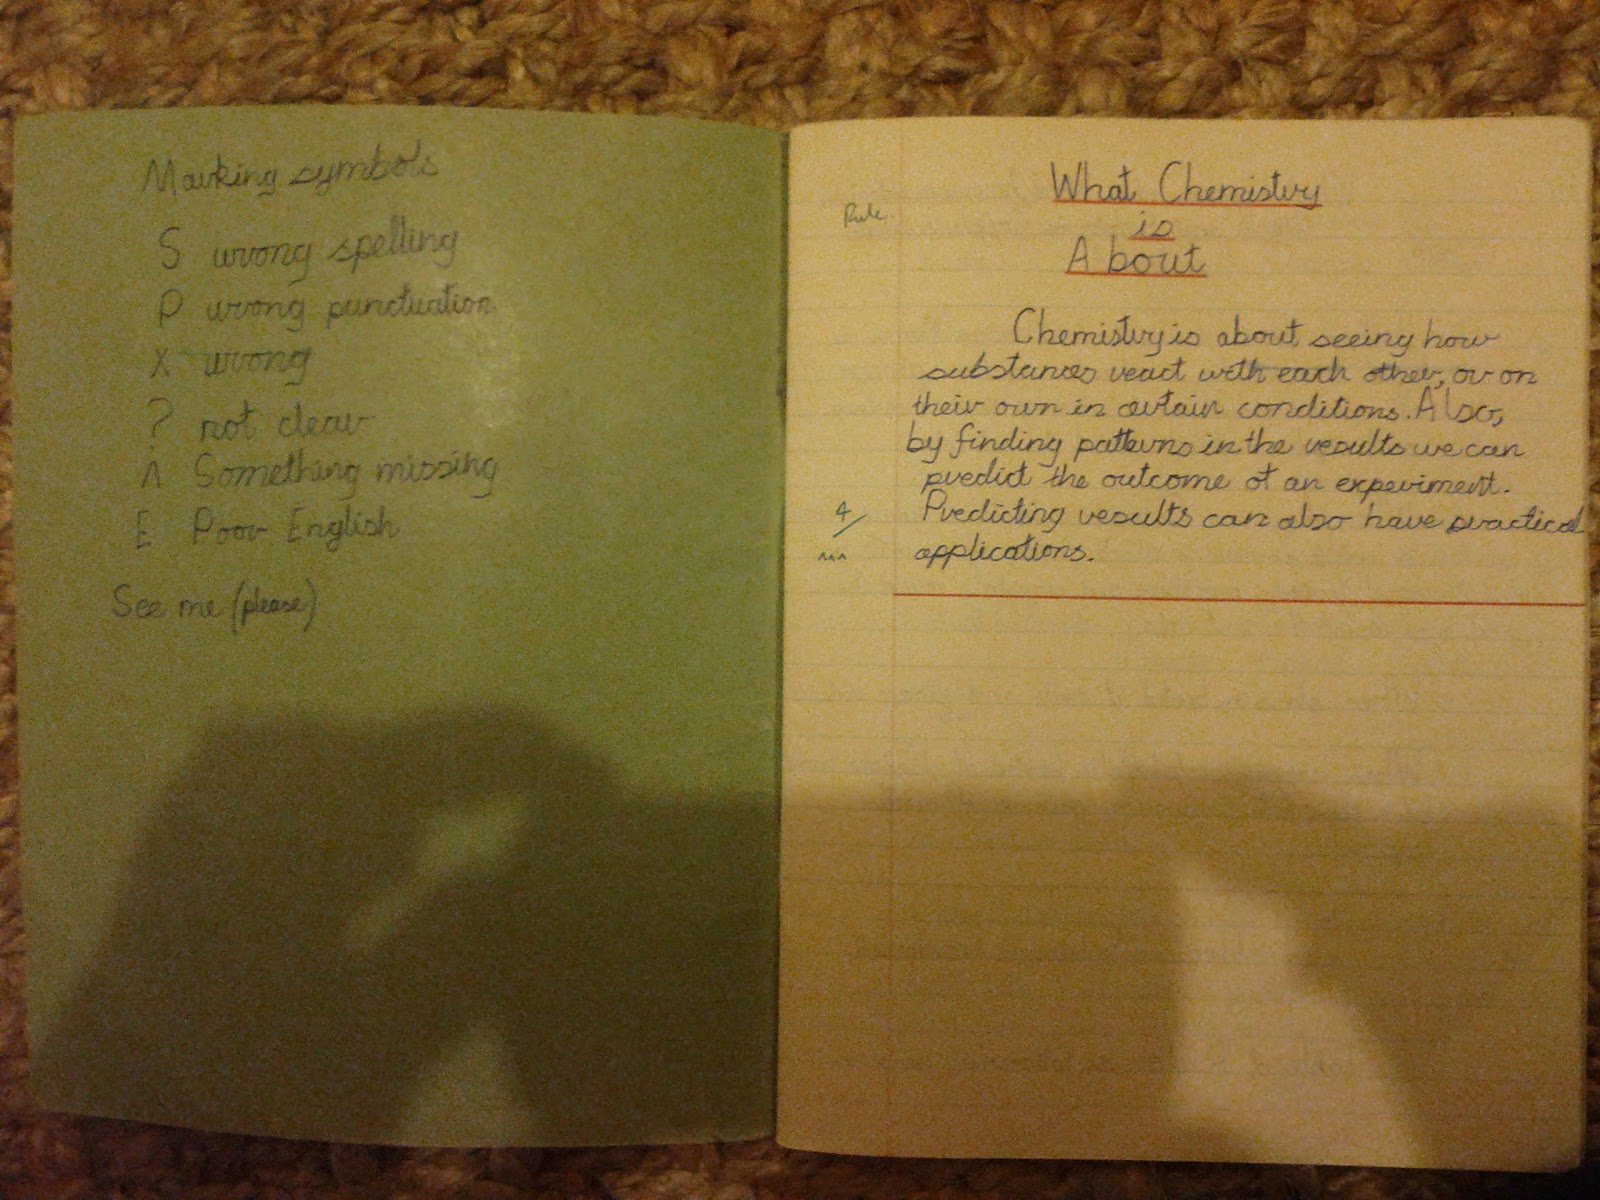 Marking symbols
S wrong spelling
P wrong punctuation
X wrong
? not clear
Λ Something missing
E Poor English
See me (please)
Rule.
What Chemistry
is
About
Chemistry is about seeing how
substances react with each other, or on
their own in certain conditions. Also,
by finding patterns in the results we can
predict the outcome of an experiment.
4/
Predicting results can also have practical
applications.